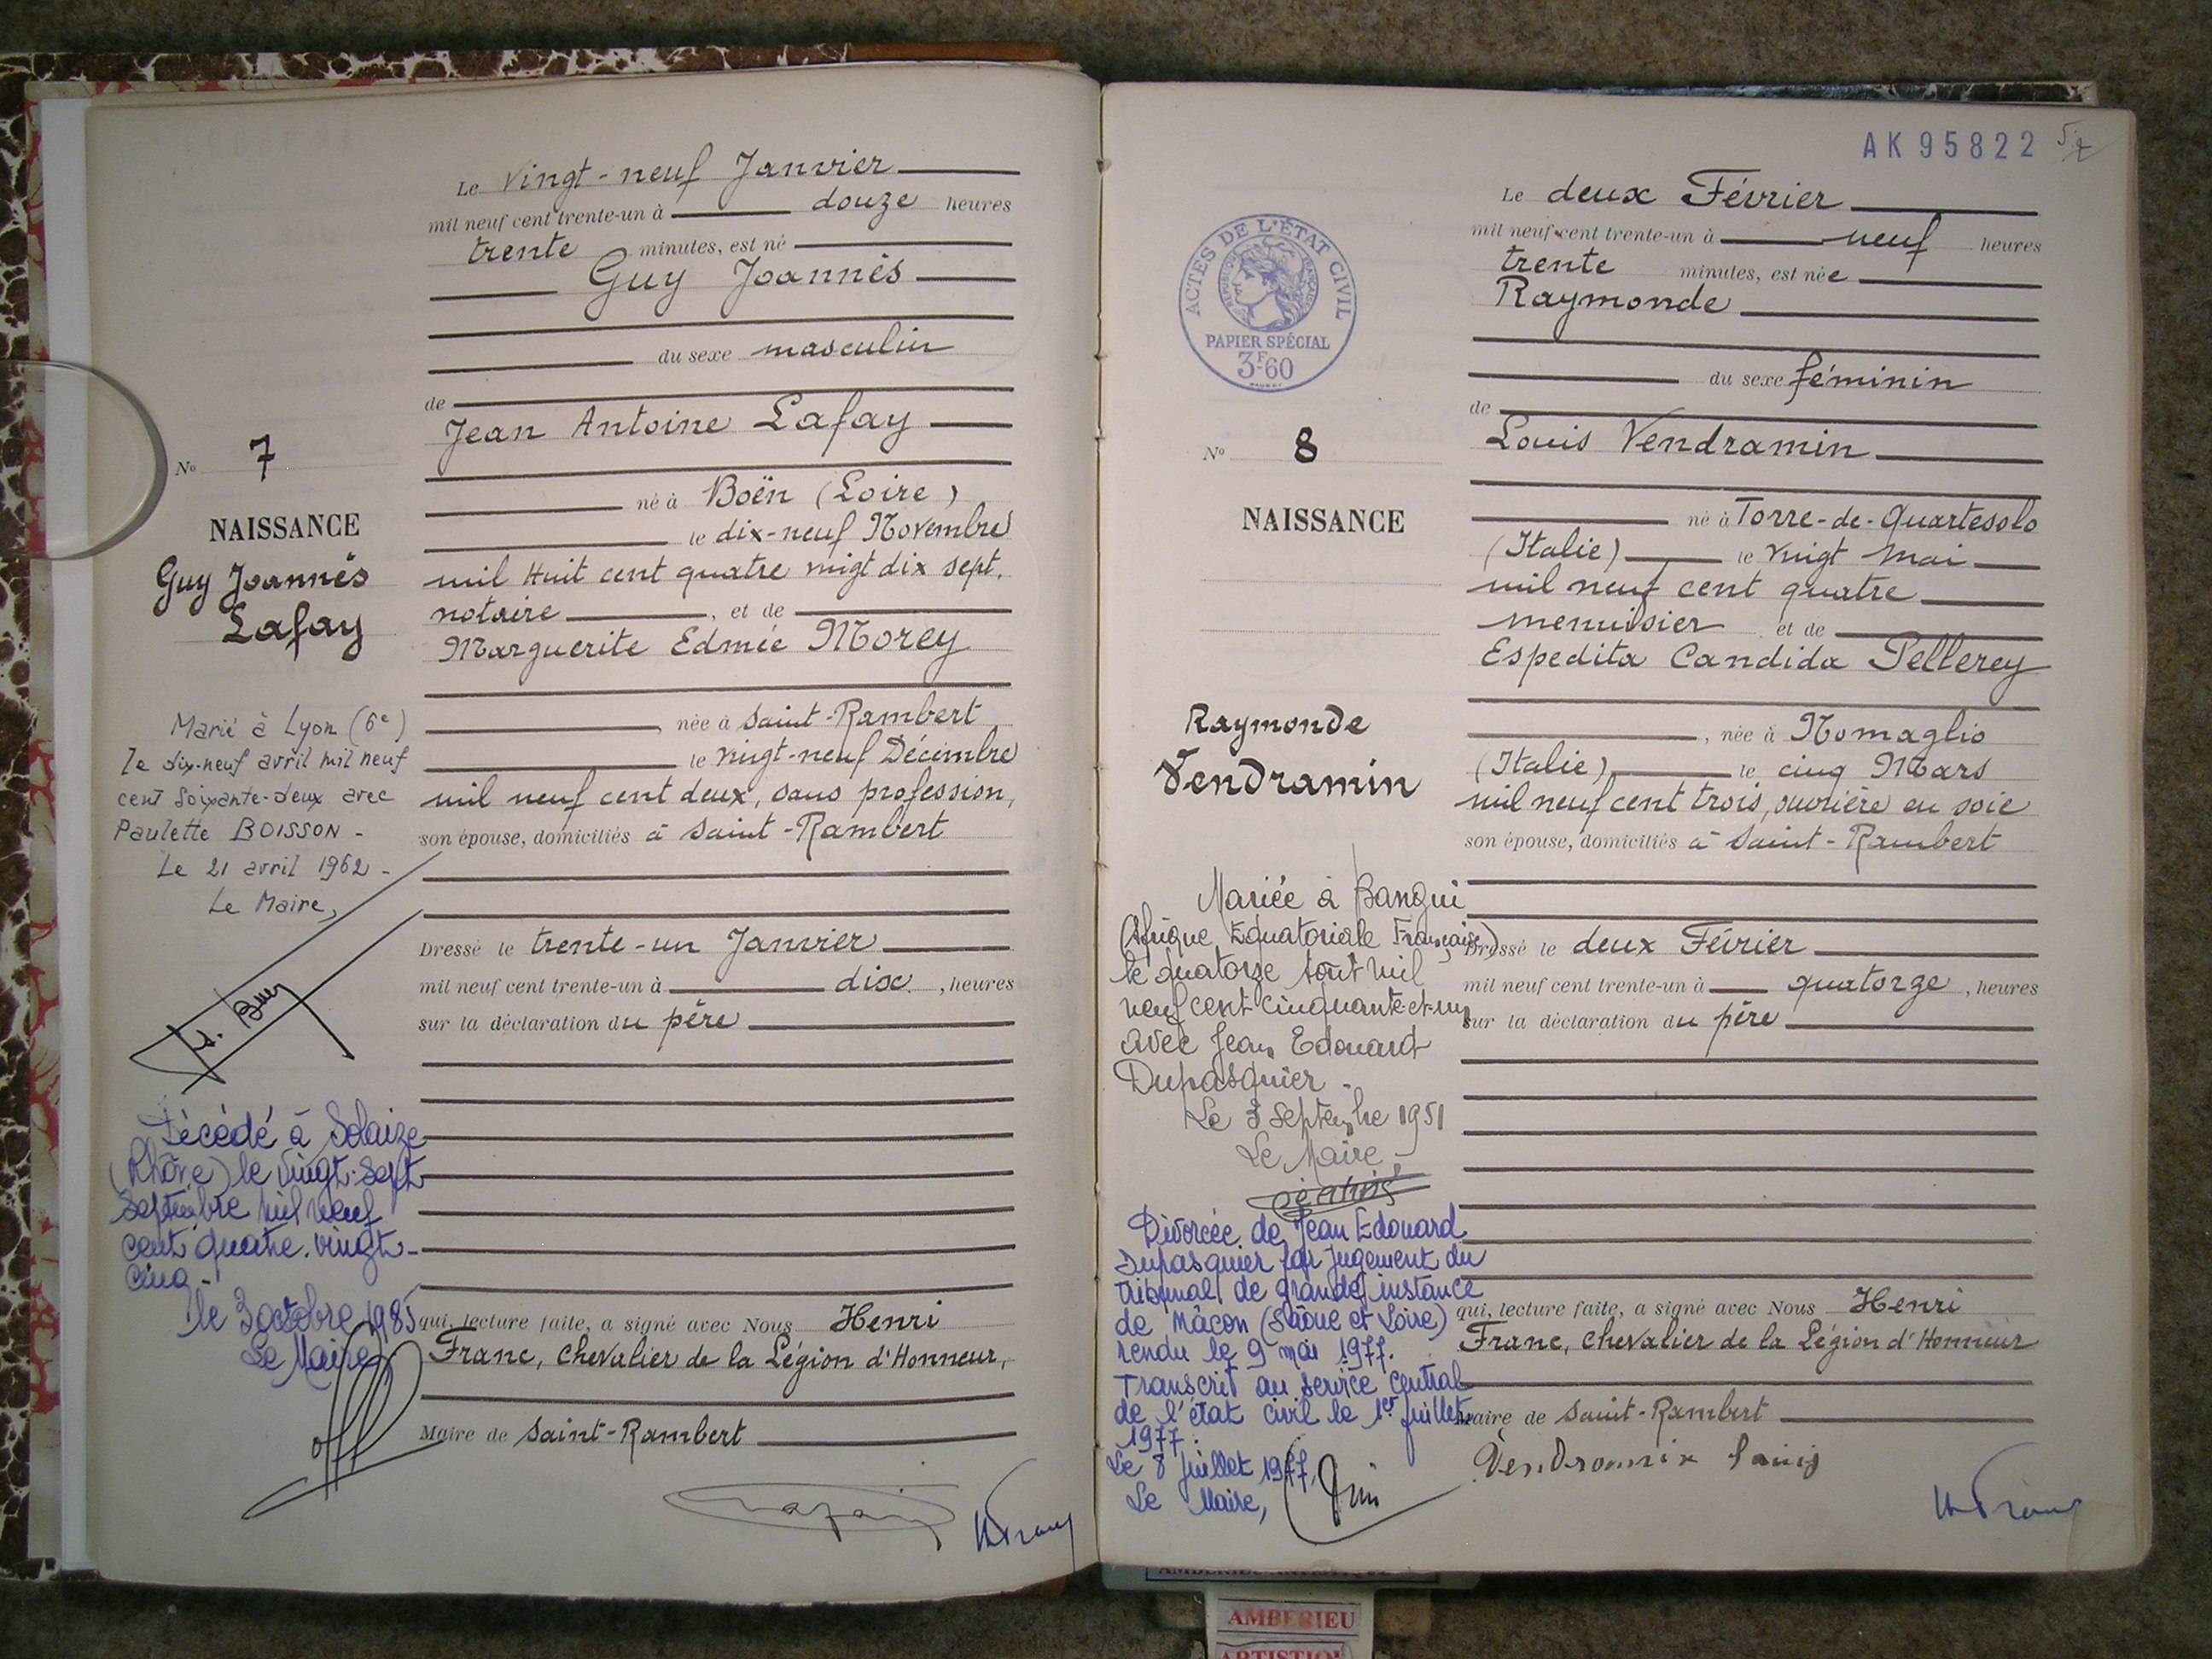 Le vingt-neuf Janvier
mil neuf cent trente-un à douze heures
trente minutes, est né
Guy Joannès
du sexe masculin
de
Jean Antoine Lafay
né à Boën (Loire)
le dix-neuf Novembre
mil Huit cent quatre vingt dix sept.
notaire, et de
Marguerite Edmée Morey
née à Saint-Rambert
le vingt-neuf Décembre
mil neuf cent deux, sans profession,
son épouse, domiciliés à Saint-Rambert
Dressé le trente-un Janvier
mil neuf cent trente-un à dix, heures
sur la déclaration du père
qui, lecture faite, a signé avec Nous Henri
Franc, Chevalier de la Légion d'Honneur,
Maire de Saint-Rambert
No 7
NAISSANCE
Guy Joannès
Lafay
Marié à Lyon (6e)
le dix-neuf avril mil neuf
cent soixante-deux avec
Paulette BOISSON -
Le 21 avril 1962 -
Le Maire,
Décédé à Solaize
(Rhône) le vingt-sept
septembre mil neuf
cent quatre-vingt-
cinq -
le 3 octobre 1985
Le Maire
AK 95822
Le deux Février
mil neuf cent trente-un à neuf heures
trente minutes, est née
Raymonde
du sexe féminin
de
Louis Vendramin
né à Torre-de-Quartesolo
(Italie) le vingt Mai
mil neuf cent quatre
menuisier et de
Espedita Candida Pellerey
, née à Nomaglio
(Italie) le cinq Mars
mil neuf cent trois, ouvrière en soie
son épouse, domiciliés à Saint-Rambert
Dressé le deux Février
mil neuf cent trente-un à quatorze, heures
sur la déclaration du père
qui, lecture faite, a signé avec Nous Henri
Franc, Chevalier de la Légion d'Honneur
Maire de Saint-Rambert
Vendramin Louis
ACTES DE L'ÉTAT CIVIL
RÉPUBLIQUE FRANÇAISE
PAPIER SPÉCIAL
3F60
No 8
NAISSANCE
Raymonde
Vendramin
Mariée à Bangui
(Afrique Equatoriale Française)
le quatorze août mil
neuf cent cinquante-et-un
avec Jean Edouard
Dupasquier -
Le 3 septembre 1951
Le Maire
Divorcée de Jean Edouard
Dupasquier par jugement du
tribunal de grande instance
de Mâcon (Saône et Loire)
rendu le 9 mai 1977.
Transcrit au service central
de l'état civil le 1er juillet
1977.
Le 8 juillet 1977,
Le Maire,
AMBERIEU